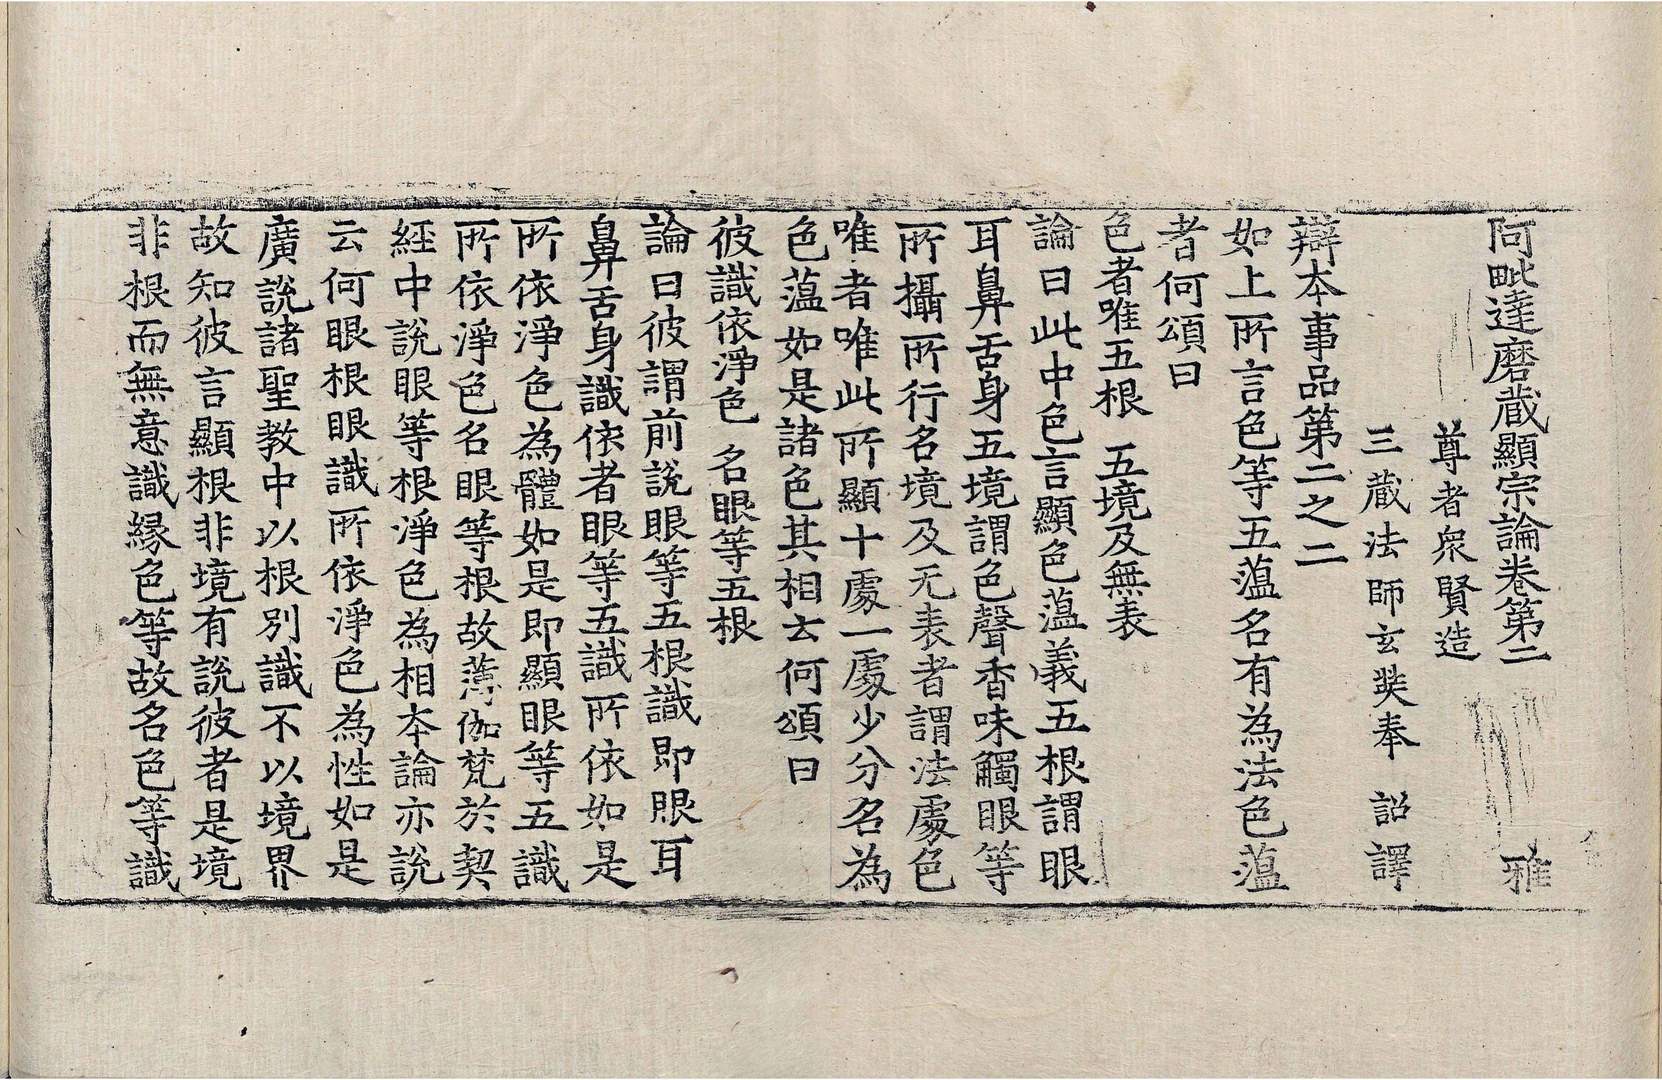 阿毗達磨蔵顯宗論卷第二 雅
尊者衆賢造
三蔵法師玄奘奉 詔譯
辯本事品第二之二
如上所言色等五薀名有為法色薀
者何頌曰
色者唯五根 五境及無表
論曰此中色言顯色薀義五根謂眼
耳鼻舌身五境謂色聲香味觸眼等
所攝所行名境及无表者謂法處色
唯者唯此所顯十處一處少分名為
色薀如是諸色其相云何頌曰
彼識依淨色 名眼等五根
論曰彼謂前說眼等五根識即眼耳
鼻舌身識依者眼等五識所依如是
所依淨色為體如是即顯眼等五識
所依淨色名眼等根故薄伽梵於契
經中說眼等根淨色為相本論亦說
云何眼根眼識所依淨色為性如是
廣說諸聖教中以根別識不以境界
故知彼言顯根非境有說彼者是境
非根而無意識緣色等故名色等識